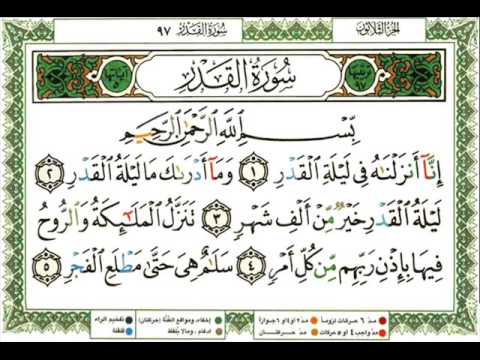 الجزء الثلاثون سورة القدر ٩٧
سورة القدر
بِسْمِ اللَّهِ الرَّحْمَٰنِ الرَّحِيمِ
إِنَّآ أَنزَلْنَٰهُ فِى لَيْلَةِ ٱلْقَدْرِ ١ وَمَآ أَدْرَىٰكَ مَا لَيْلَةُ ٱلْقَدْرِ ٢
لَيْلَةُ ٱلْقَدْرِ خَيْرٌ مِّنْ أَلْفِ شَهْرٍ ٣ تَنَزَّلُ ٱلْمَلَٰٓئِكَةُ وَٱلرُّوحُ
فِيهَا بِإِذْنِ رَبِّهِم مِّن كُلِّ أَمْرٍ ٤ سَلَٰمٌ هِىَ حَتَّىٰ مَطْلَعِ ٱلْفَجْرِ ٥
مدّ ٦ حركات لزوماً مدّ ٢ أو ٤ أو ٦ جوازاً إخفاء، ومواقع الغُنَّة (حركتان) تفخيم الراء
مدّ واجب ٤ أو ٥ حركات مدّ حركتان إدغام، وما لا يُلفَظ قلقلة